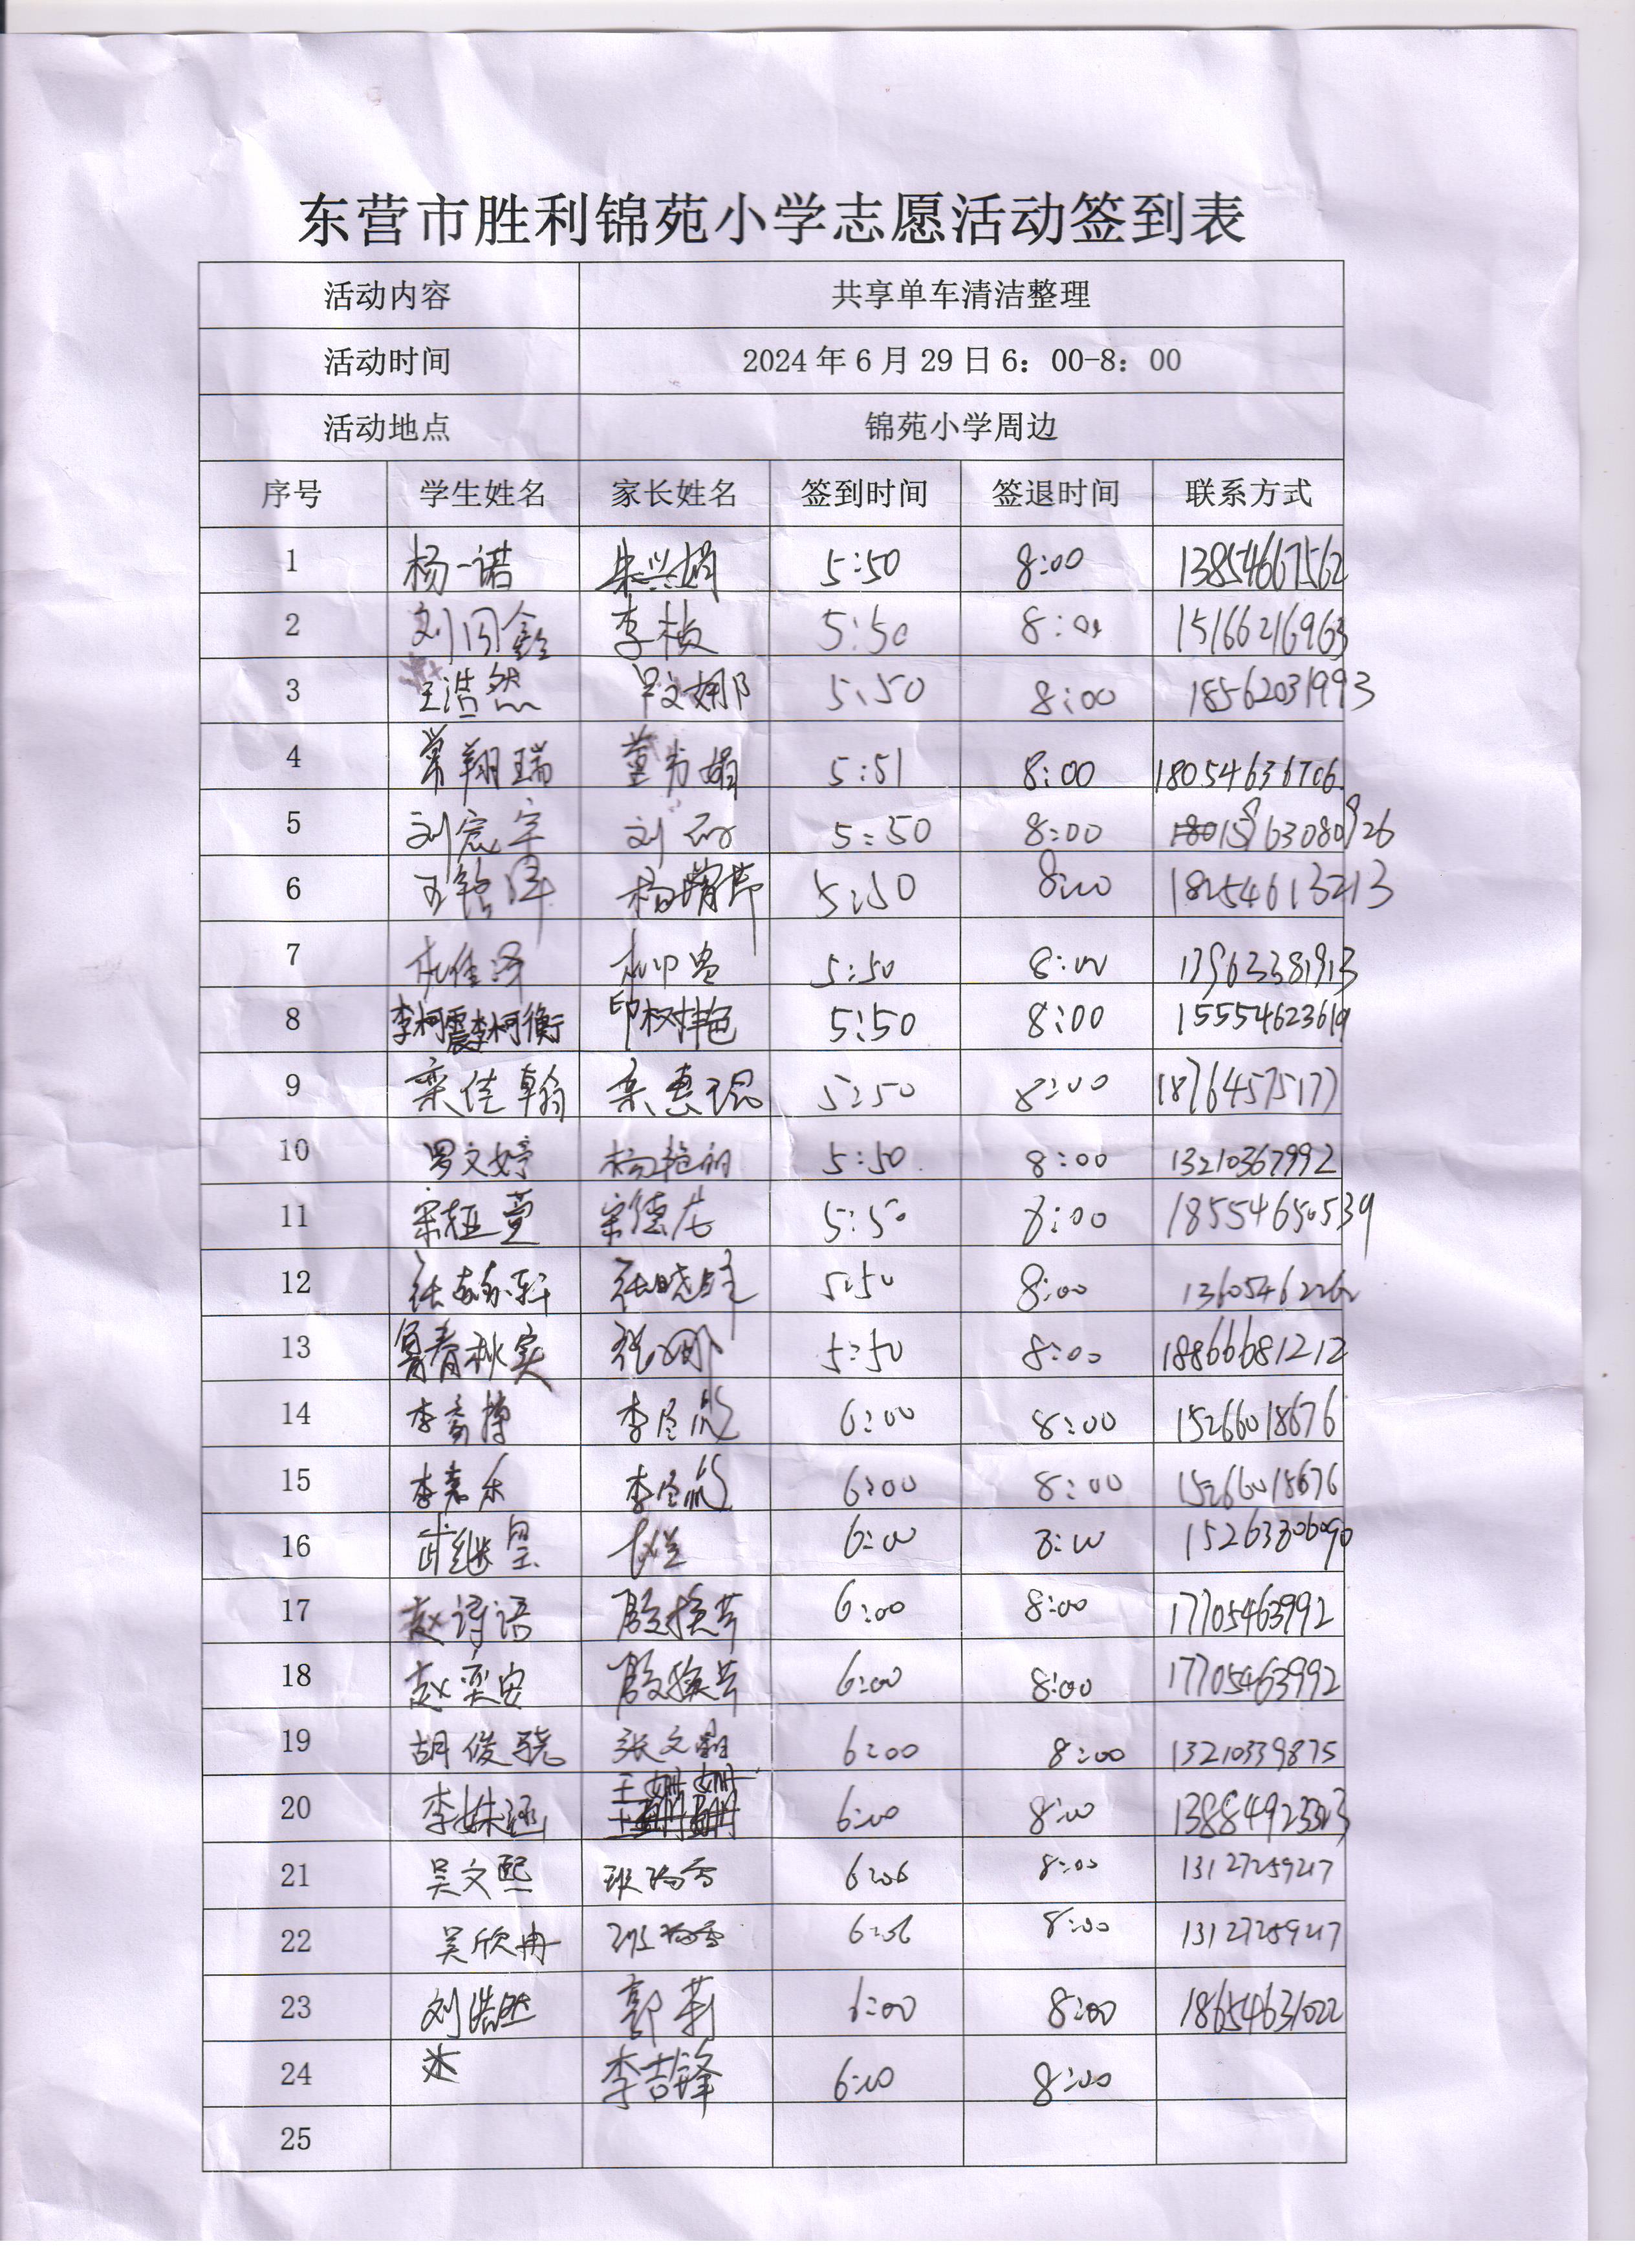 东营市胜利锦苑小学志愿活动签到表
活动内容 共享单车清洁整理
活动时间 2024年6月29日6：00-8：00
活动地点 锦苑小学周边
序号 学生姓名 家长姓名 签到时间 签退时间 联系方式
1 杨一诺 朱兴娟 5:50 8:00 13854667562
2 刘闰鑫 李桢 5:50 8:00 15166216963
3 王浩然 罗文娜 5:50 8:00 18562031993
4 翔瑞 董秀娟 5:51 8:00 18054636706
5 刘宸宇 刘 5:50 8:00
6 王铭泽 5:50 8:00 18254613213
7 杜佳泽 5:50 8:00
8 李柯震李柯衡 5:50 8:00 15554623619
9 栾佳翰 栾惠琨 5:50 8:00 18764575177
10 罗文婷 杨艳丽 5:50 8:00 13210367992
11 宋垭萱 宋德龙 5:50 8:00 18554650539
12 张 轩 张晓 5:50 8:00
13 秋实 张娜 5:50 8:00 18866681212
14 李 博 李 6:00 8:00 15266018676
15 李嘉乐 李 6:00 8:00 15266018676
16 武继 6:00 8:00 15263306090
17 赵诗语 殷焕芹 6:00 8:00 17705463992
18 赵奕安 殷焕芹 6:00 8:00 17705463992
19 胡俊骁 张文娟 6:00 8:00 13210339875
20 李姝涵 王姗姗 6:00 8:00
21 吴文熙 班 6:06 8:00 13127259217
22 吴欣冉 班 6:06 8:00 13127259217
23 刘浩然 郭莉 6:00 8:00 18654631022
24 李吉锋 6:00 8:00
25